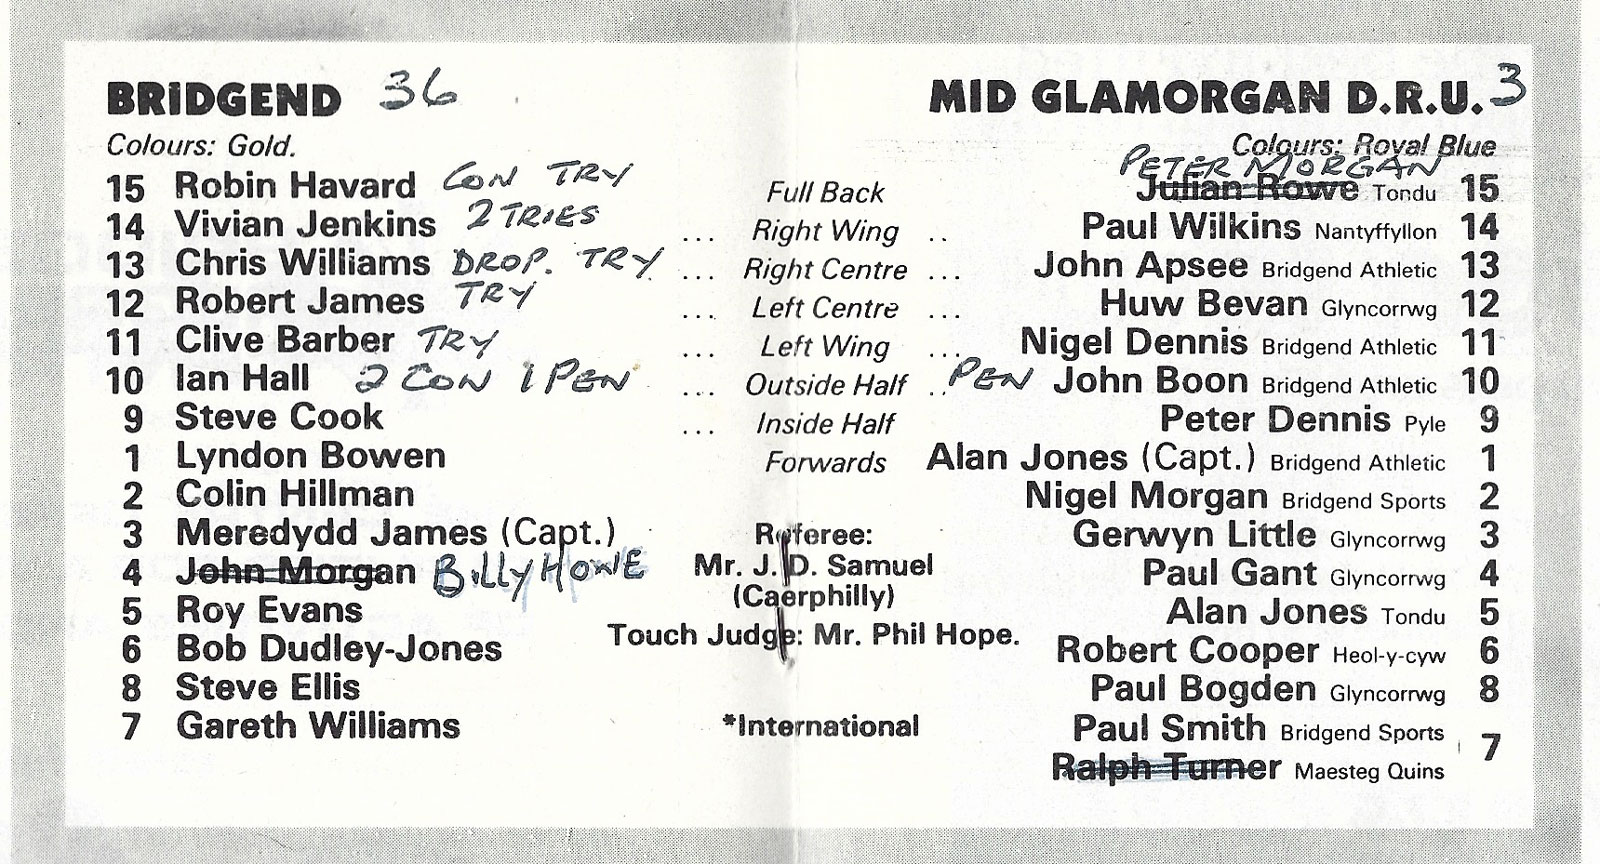 BRIDGEND 36
MID GLAMORGAN D.R.U. 3
Colours: Gold.
Colours: Royal Blue
PETER MORGAN
15 Robin Havard CON TRY Full Back Julian Rowe Tondu 15
14 Vivian Jenkins 2 TRIES ... Right Wing .. Paul Wilkins Nantyffyllon 14
13 Chris Williams DROP. TRY ... Right Centre ... John Apsee Bridgend Athletic 13
12 Robert James TRY ... Left Centre ... Huw Bevan Glyncorrwg 12
11 Clive Barber TRY ... Left Wing ... Nigel Dennis Bridgend Athletic 11
10 Ian Hall 2 CON 1 PEN ... Outside Half .. PEN John Boon Bridgend Athletic 10
9 Steve Cook ... Inside Half Peter Dennis Pyle 9
1 Lyndon Bowen Forwards Alan Jones (Capt.) Bridgend Athletic 1
2 Colin Hillman Nigel Morgan Bridgend Sports 2
3 Meredydd James (Capt.) Referee: Gerwyn Little Glyncorrwg 3
4 John Morgan BILLY HOWE Mr. J. D. Samuel Paul Gant Glyncorrwg 4
(Caerphilly)
5 Roy Evans Alan Jones Tondu 5
Touch Judge: Mr. Phil Hope.
6 Bob Dudley-Jones Robert Cooper Heol-y-cyw 6
8 Steve Ellis Paul Bogden Glyncorrwg 8
7 Gareth Williams *International Paul Smith Bridgend Sports 7
Ralph Turner Maesteg Quins